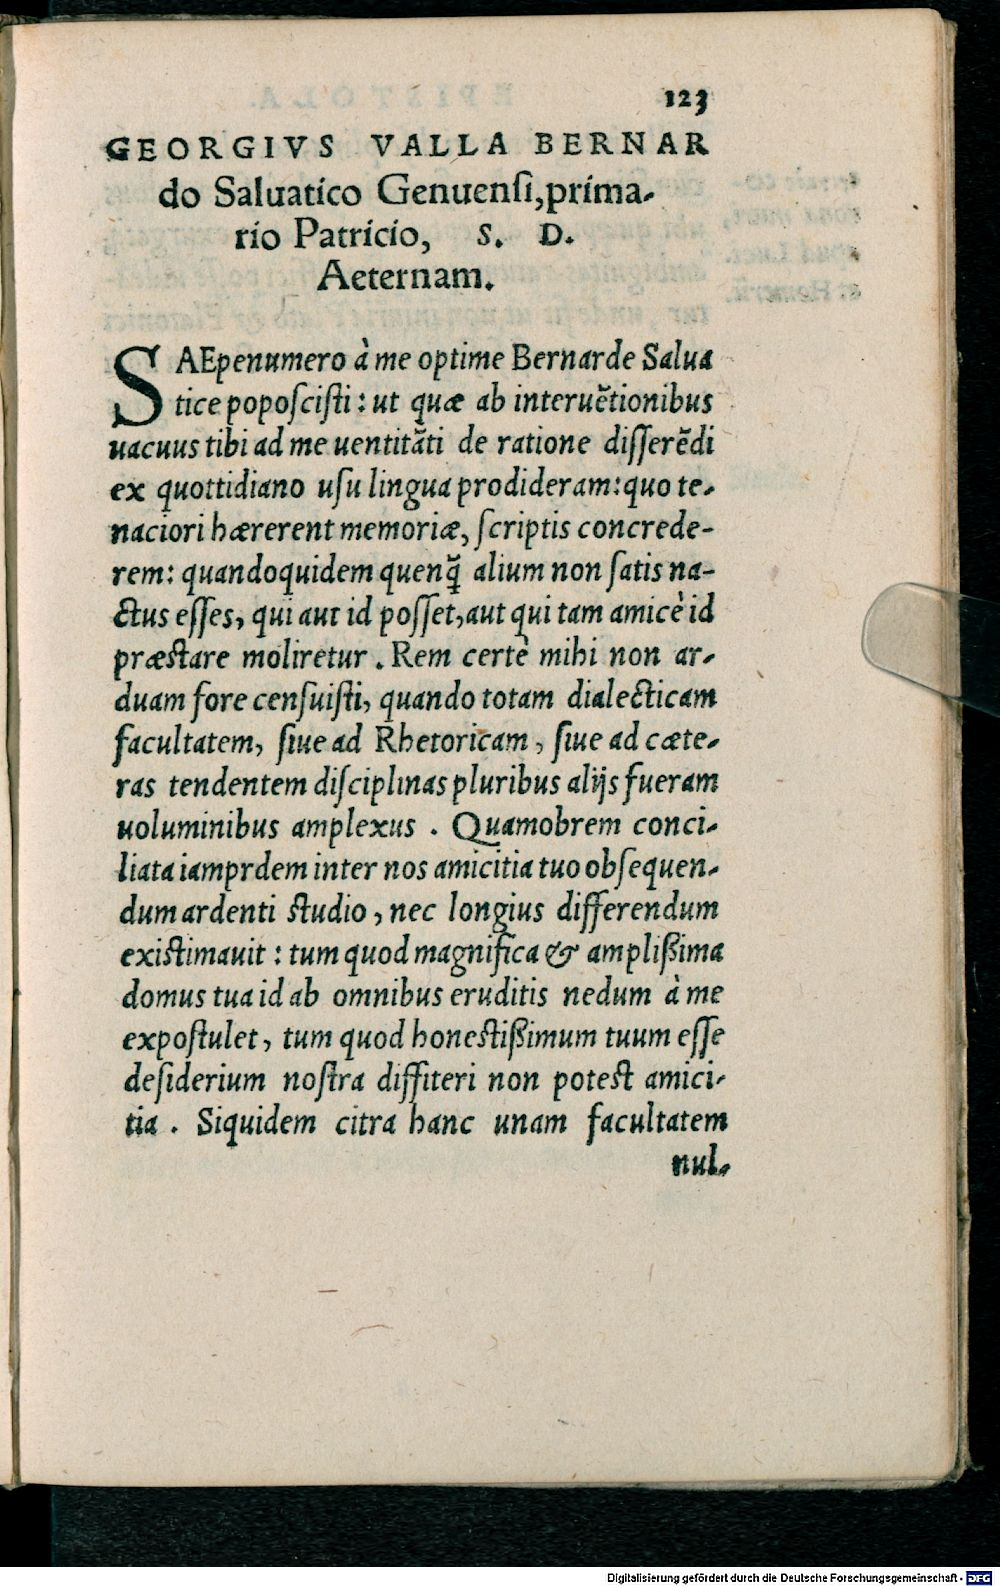 123
GEORGIVS VALLA BERNAR
do Saluatico Genuensi, prima-
rio Patricio, S. D.
Aeternam.
SAEpenumero à me optime Bernarde Salua
tice poposcisti: ut quæ ab interuētionibus
uacuus tibi ad me uentitāti de ratione disserēdi
ex quottidiano usu lingua prodideram: quo te-
naciori hærerent memoriæ, scriptis concrede-
rem: quandoquidem quenq̃ alium non satis na-
ctus esses, qui aut id posset, aut qui tam amicè id
præstare moliretur. Rem certè mihi non ar-
duam fore censuisti, quando totam dialecticam
facultatem, siue ad Rhetoricam, siue ad cæte-
ras tendentem disciplinas pluribus alijs fueram
uoluminibus amplexus. Quamobrem conci-
liata iamprdem inter nos amicitia tuo obsequen-
dum ardenti studio, nec longius differendum
existimauit: tum quod magnifica & amplißima
domus tua id ab omnibus eruditis nedum à me
expostulet, tum quod honestißimum tuum esse
desiderium nostra diffiteri non potest amici-
tia. Siquidem citra hanc unam facultatem
nul-
Digitalisierung gefördert durch die Deutsche Forschungsgemeinschaft - DFG